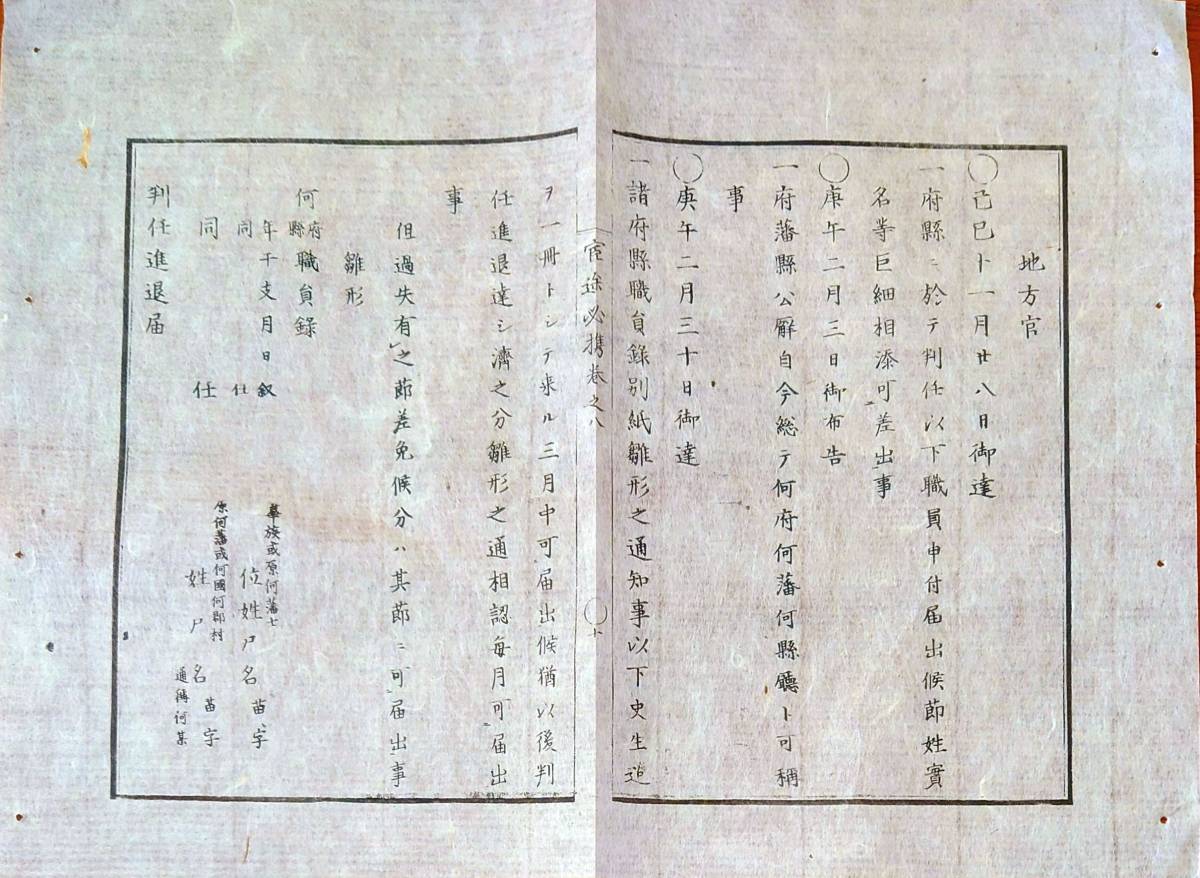 地方官
◯己巳十一月廿八日御達
一府縣ニ於テ判任以下職員申付届出候節姓實
名等巨細相添可差出事
◯庚午二月三日御布告
一府藩縣公廨自今総テ何府何藩何縣廳ト可稱
事
◯庚午二月三十日御達
一諸府縣職員錄別紙雛形之通知事以下史生迄
宦途必携巻之八
◯十
ヲ一冊トシテ来ル三月中可届出候猶以後判
任進退達シ濟之分雛形之通相認毎月可届出
事
但過失有之節差免候分ハ其節ニ可届出事
雛形
何府縣職員錄
年干支月日叙
華族或原何藩士
同 任 位姓尸名苗字
原何藩或何國何郡村
同 任 姓尸名苗字
通稱何某
判任進退届